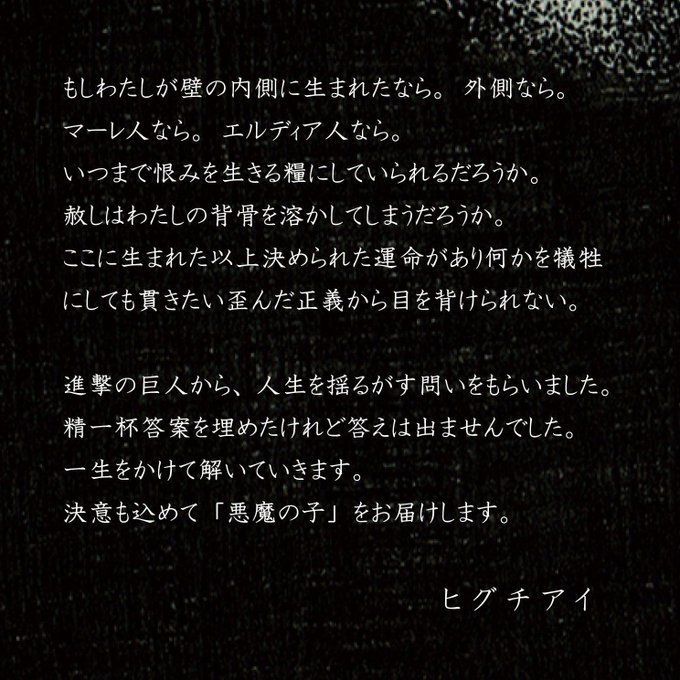 もしわたしが壁の内側に生まれたなら。 外側なら。
マーレ人なら。 エルディア人なら。
いつまで恨みを生きる糧にしていられるだろうか。
赦しはわたしの背骨を溶かしてしまうだろうか。
ここに生まれた以上決められた運命があり何かを犠牲
にしても貫きたい歪んだ正義から目を背けられない。
進撃の巨人から、人生を揺るがす問いをもらいました。
精一杯答案を埋めたけれど答えは出ませんでした。
一生をかけて解いていきます。
決意も込めて「悪魔の子」をお届けします。
ヒグチアイ